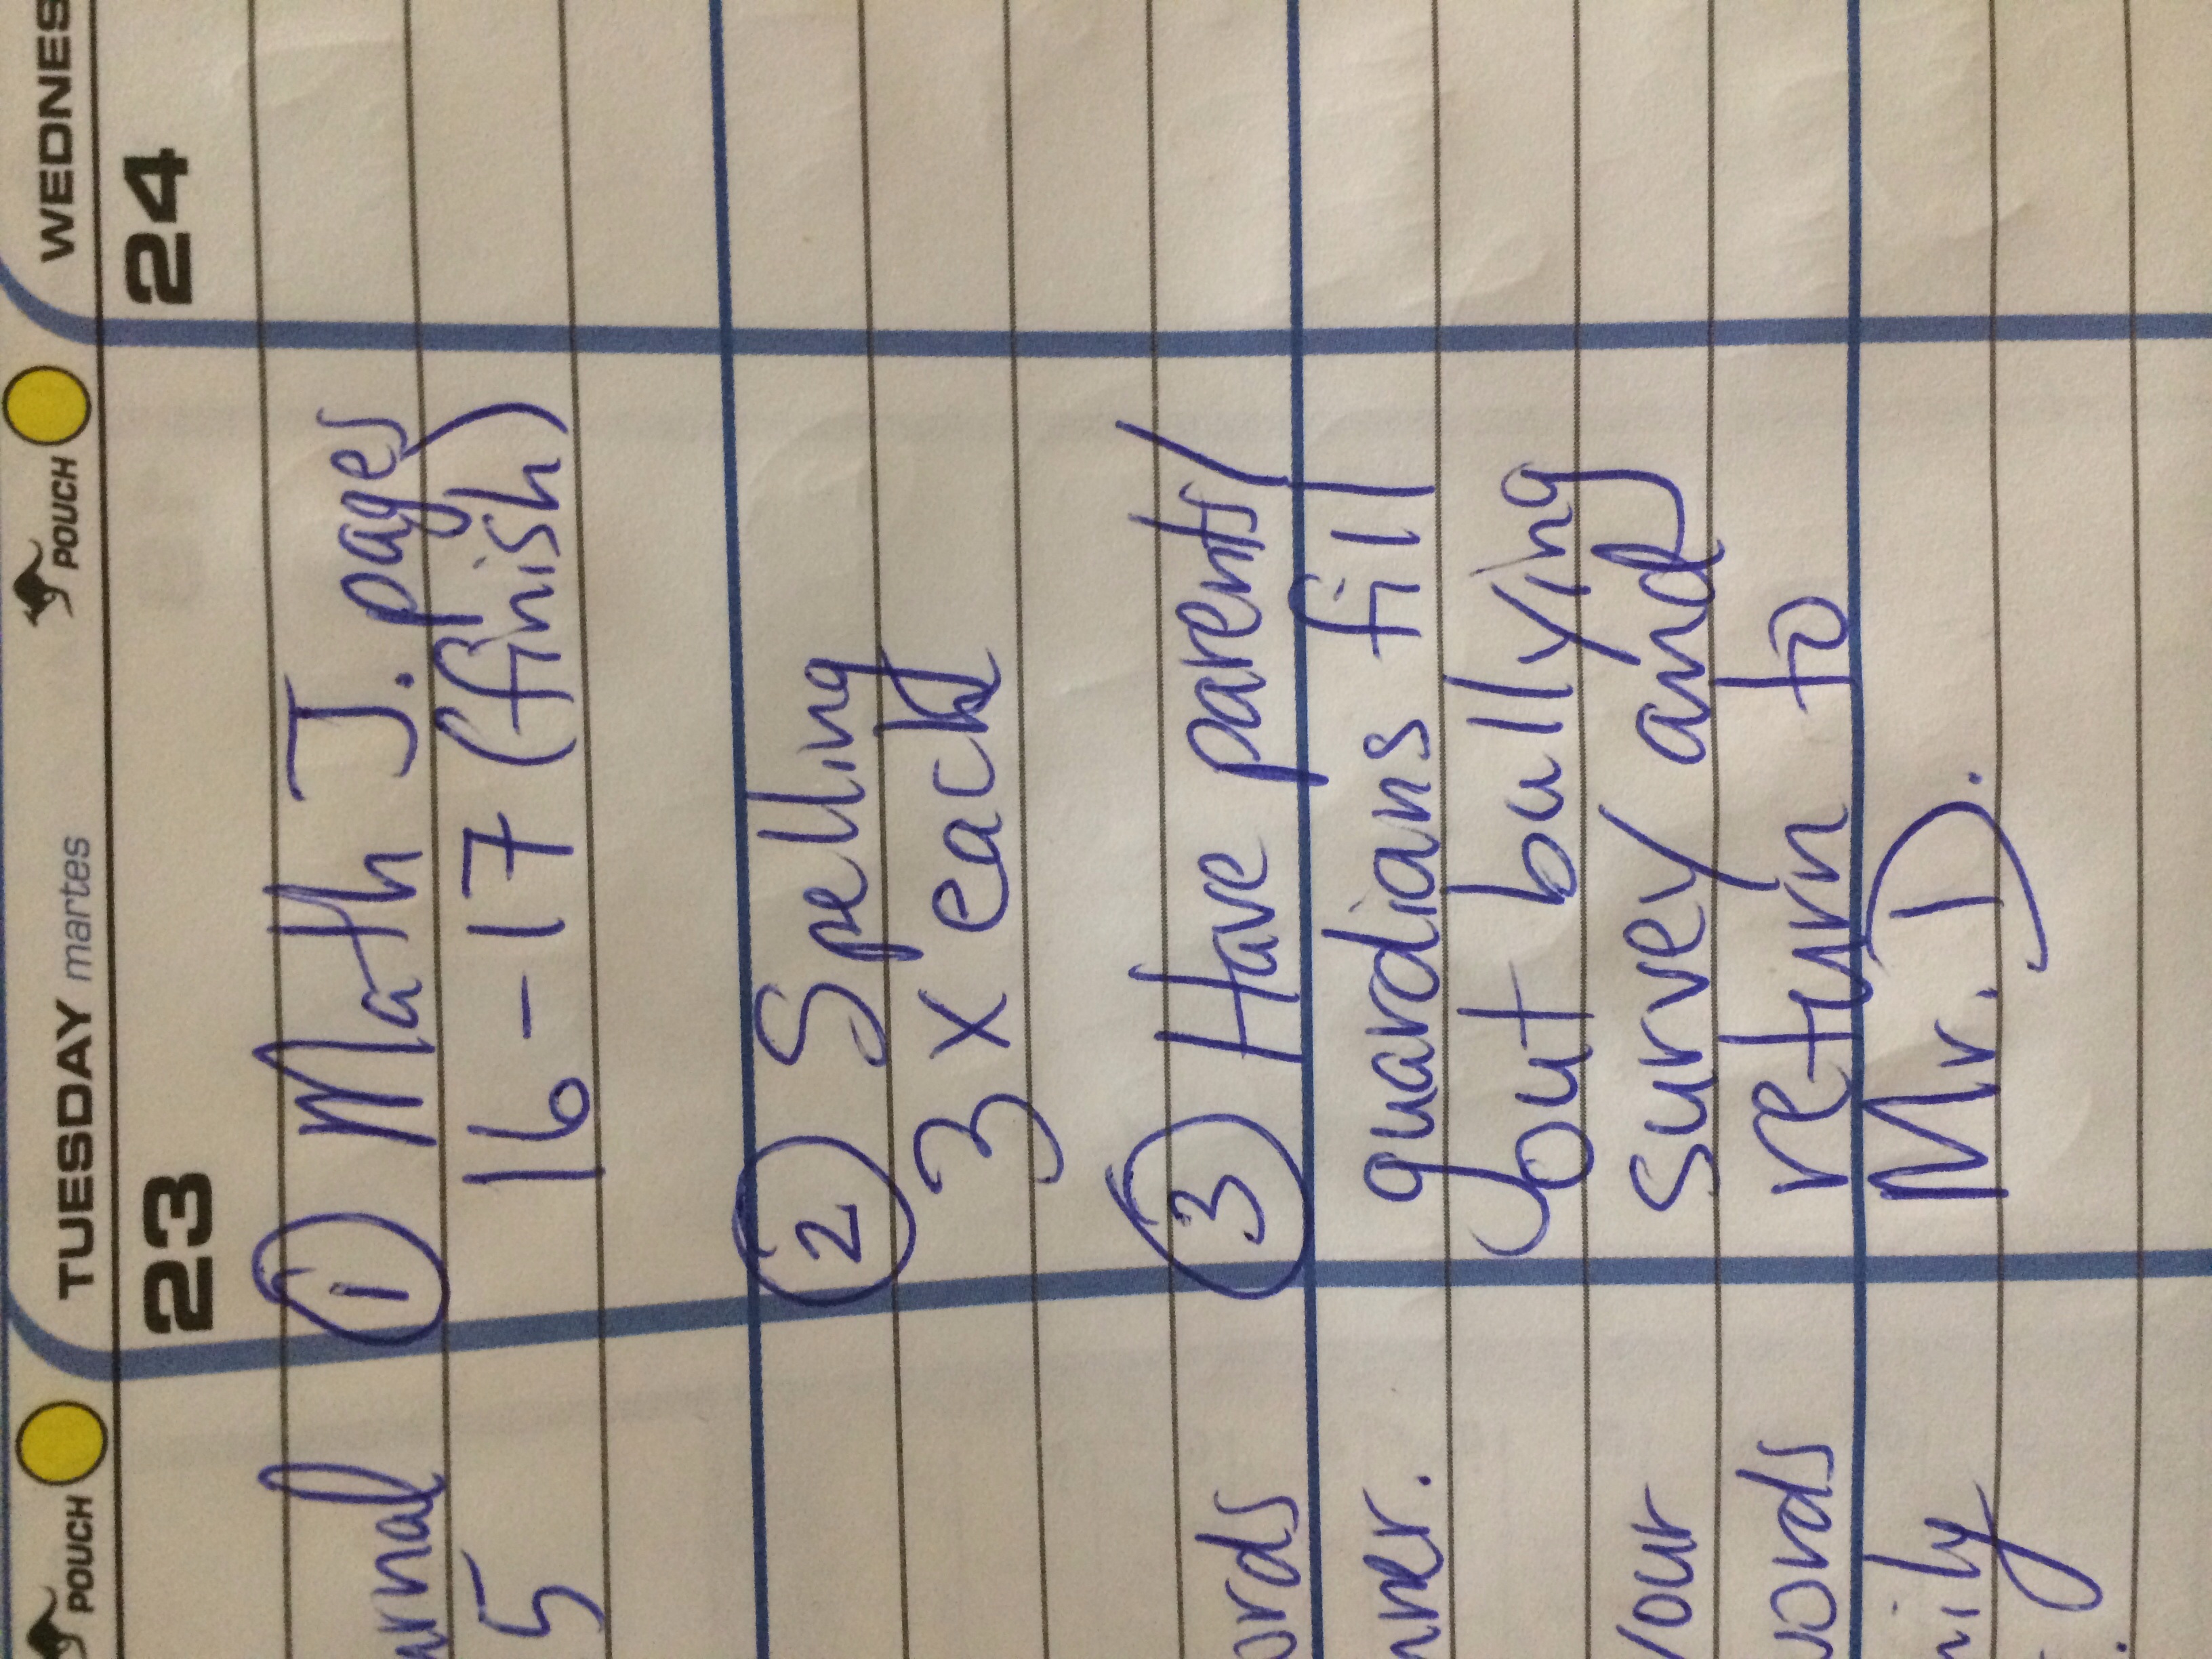 POUCH
TUESDAY martes
POUCH
WEDNES
23
24
① Math J. pages
16-17 (finish)
② Spelling
3x each
③ Have parents/
guardians fill
out bullying
survey and
return to
Mr. D.
5
your